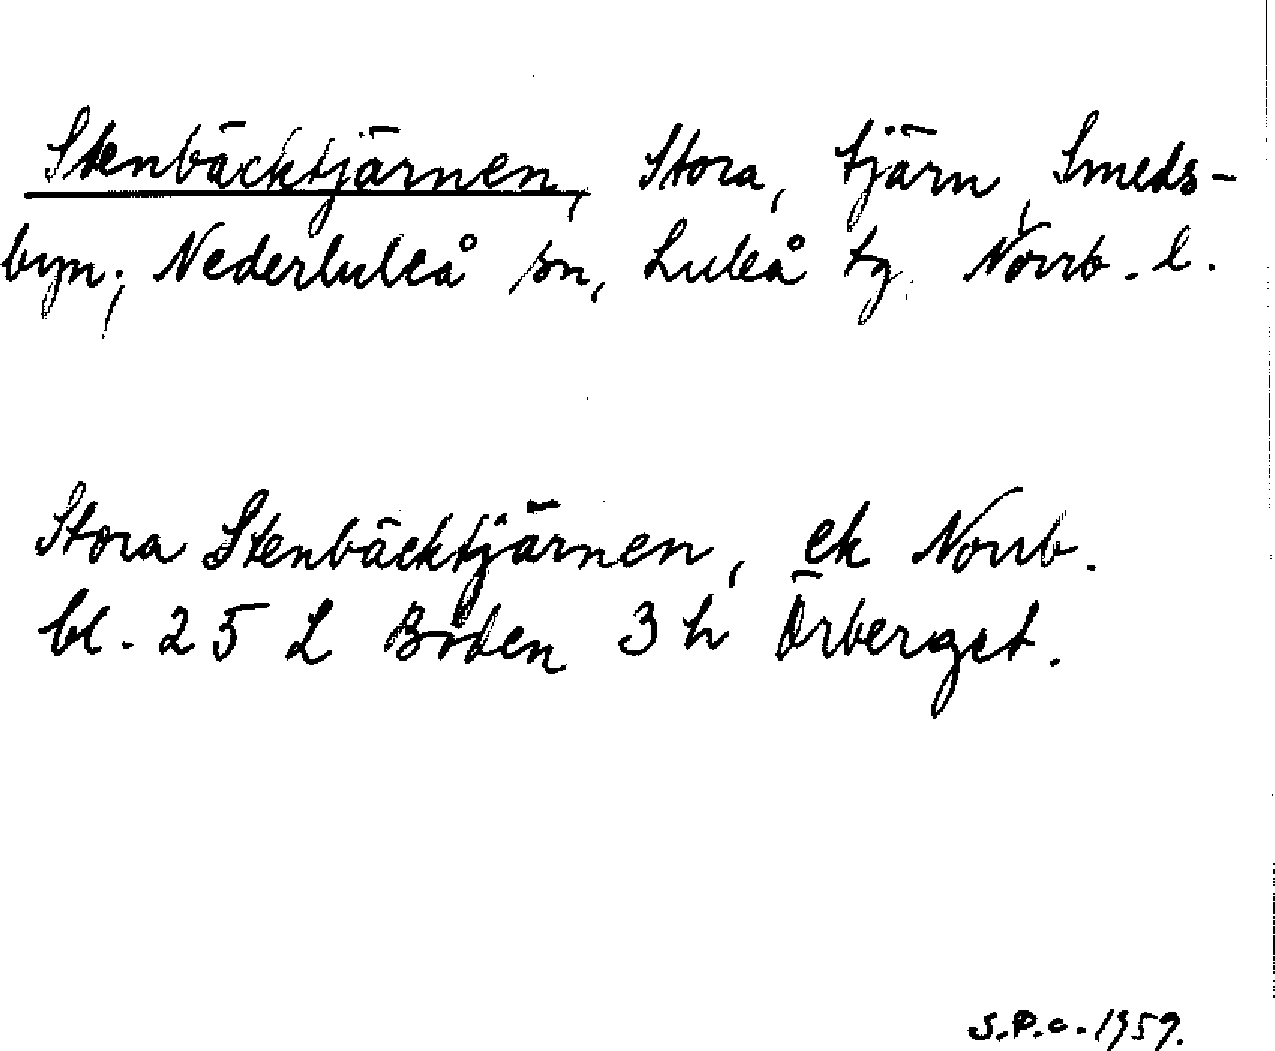 Stenbäcktjärnen, Stora, tjärn, Smeds-
byn, Nederluleå sn, Luleå tg. Norrb. l.
Stora Stenbäcktjärnen, ek Norrb.
bl. 25 L Boden 3 h Örberget.
S.P.c. 1959.